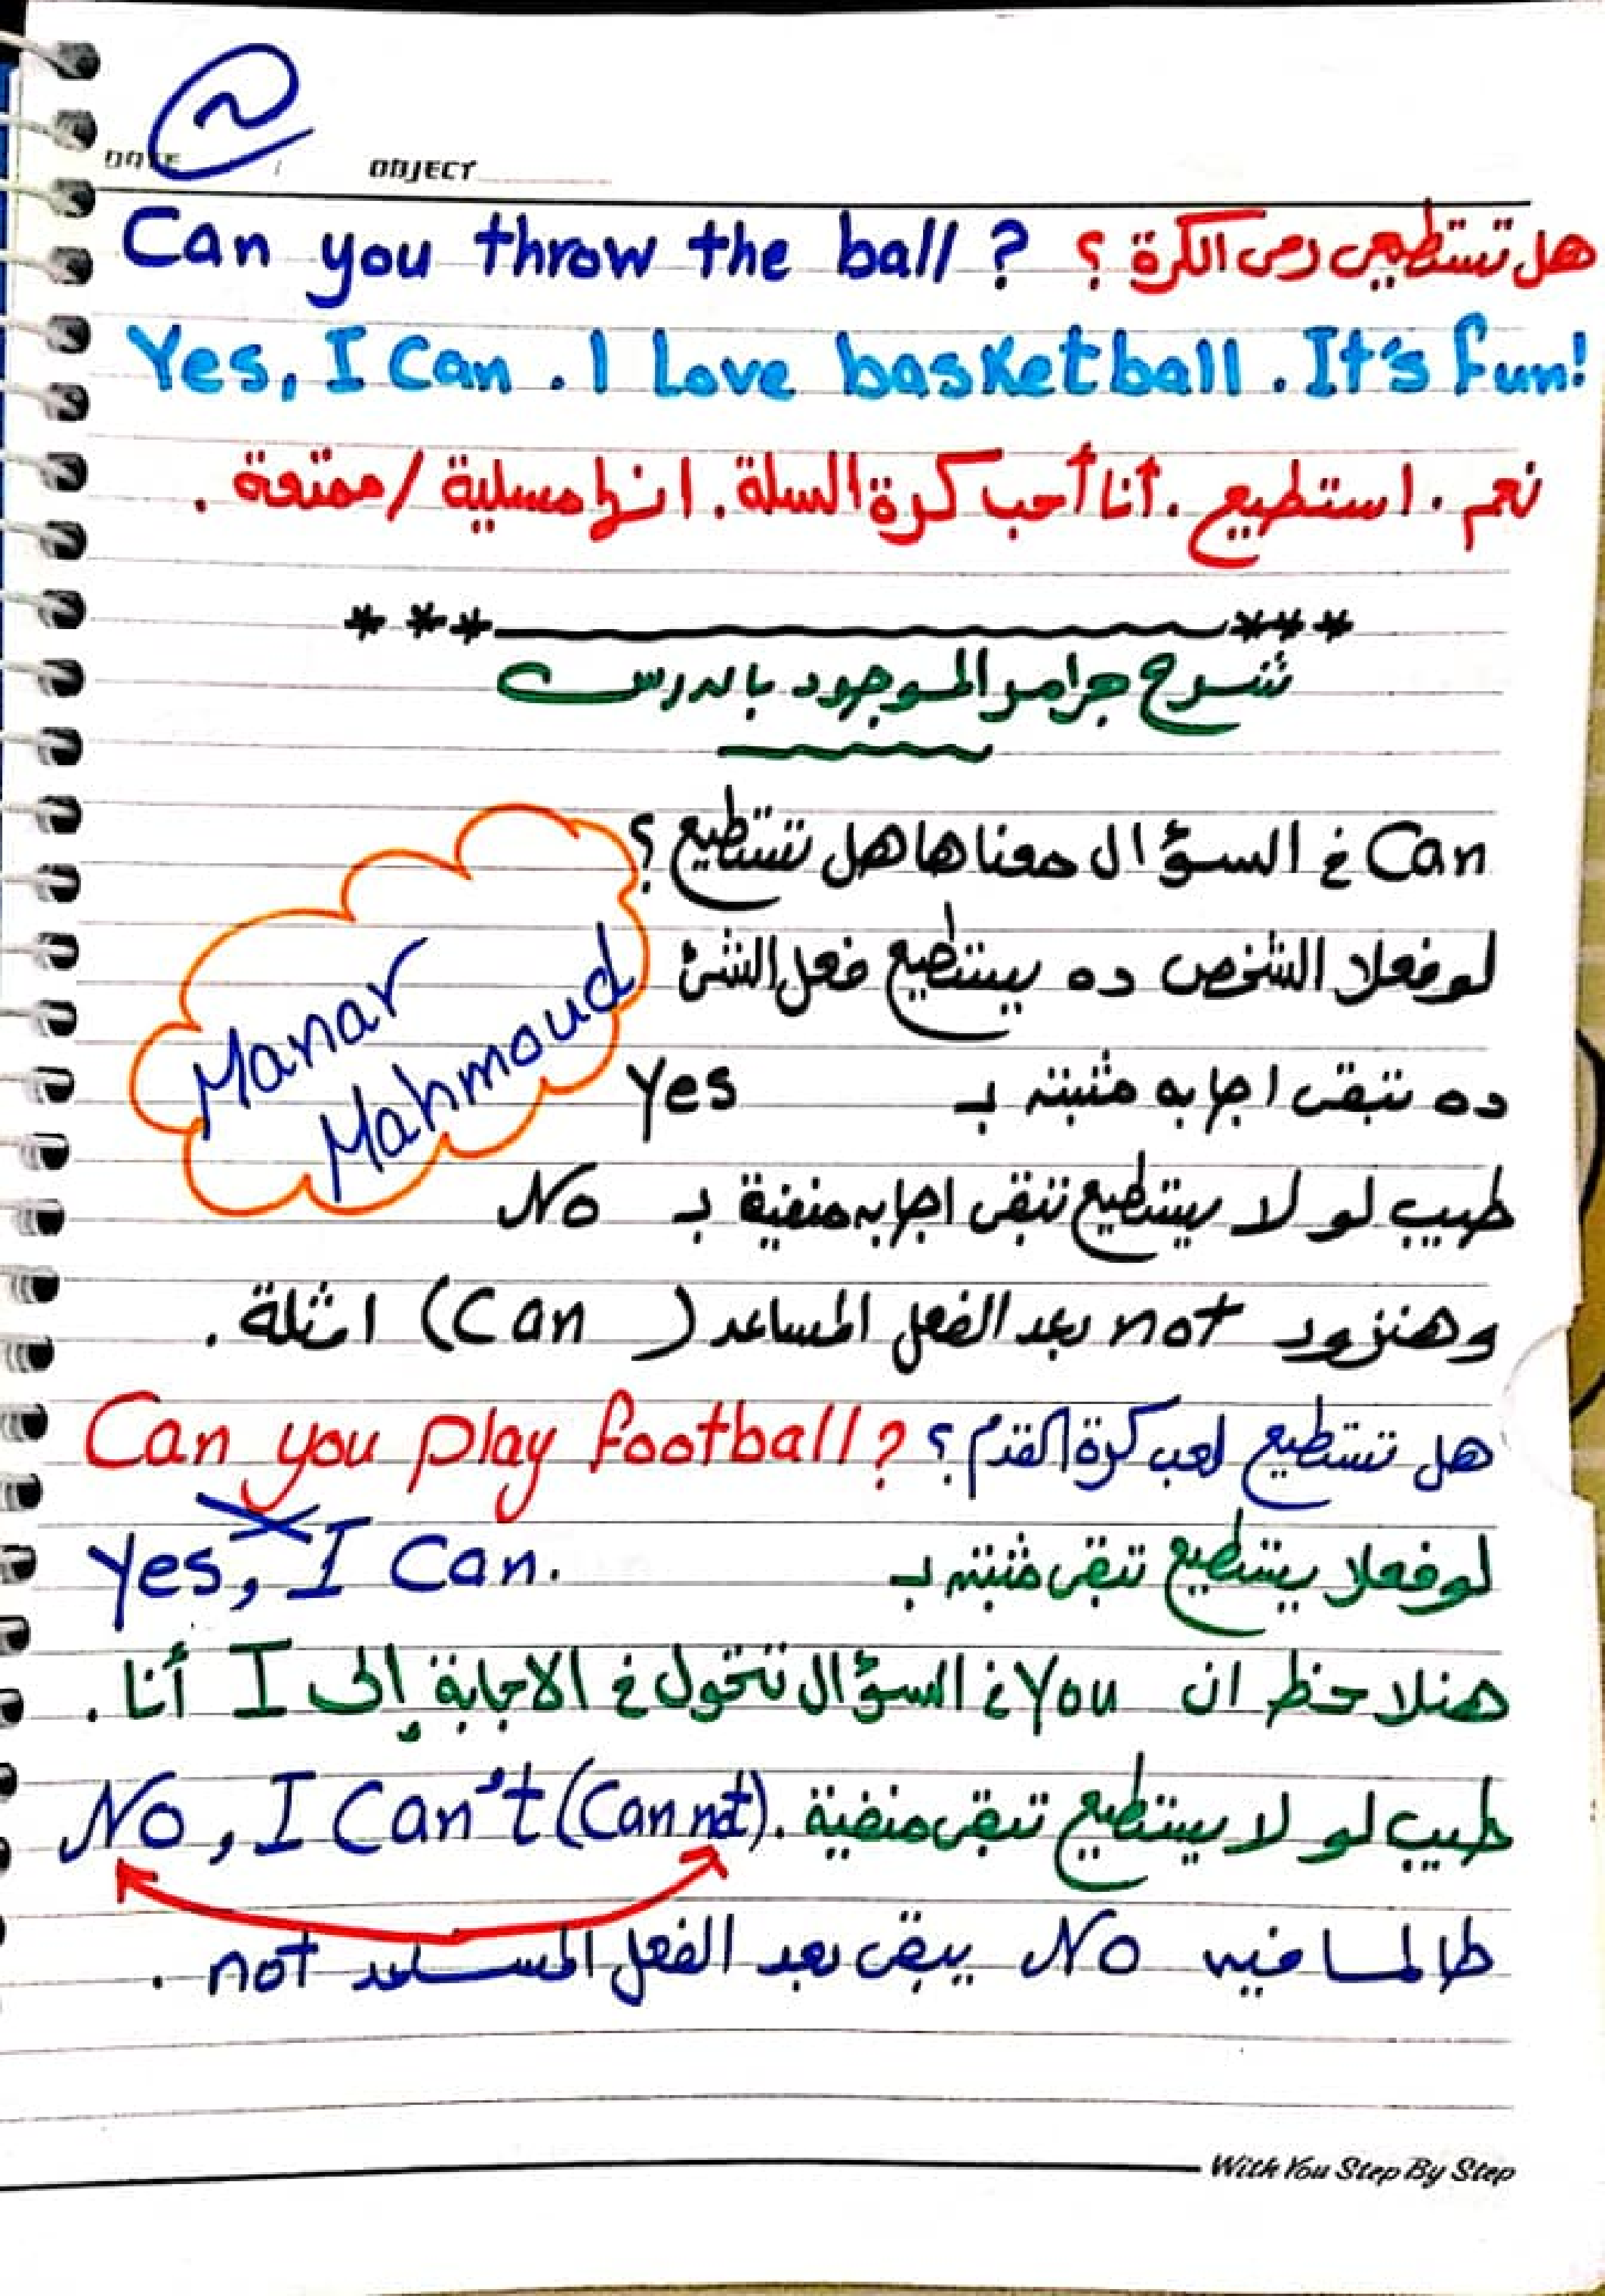 DATE / OBJECT
Can you throw the ball ? هل تستطيع رمى الكرة ؟
Yes, I Can . I Love basketball . It's fun!
نعم . استطيع . أنا أحب كرة السلة . انها مسلية / ممتعة .
*** ***
شرح جرامر الموجود بالدرس
Can فى السؤال معناها هل تستطيع ؟
لو فعلا الشخص ده يستطيع فعل الشئ
ده تبقى اجابه مثبته بـ Yes
Manar
Mahmoud
طيب لو لا يستطيع تبقى اجابه منفية بـ No
وهنزود not بعد الفعل المساعد ( Can ) امثلة .
Can you play football ? هل تستطيع لعب كرة القدم ؟
لو فعلا يستطيع تبقى مثبته بـ Yes, I Can.
هنلاحظ ان You فى السؤال تتحول فى الاجابة إلى I أنا .
طيب لو لا يستطيع تبقى منفية . No, I Can't (Can not)
طالما فيه No يبقى بعد الفعل المساعد not .
With You Step By Step